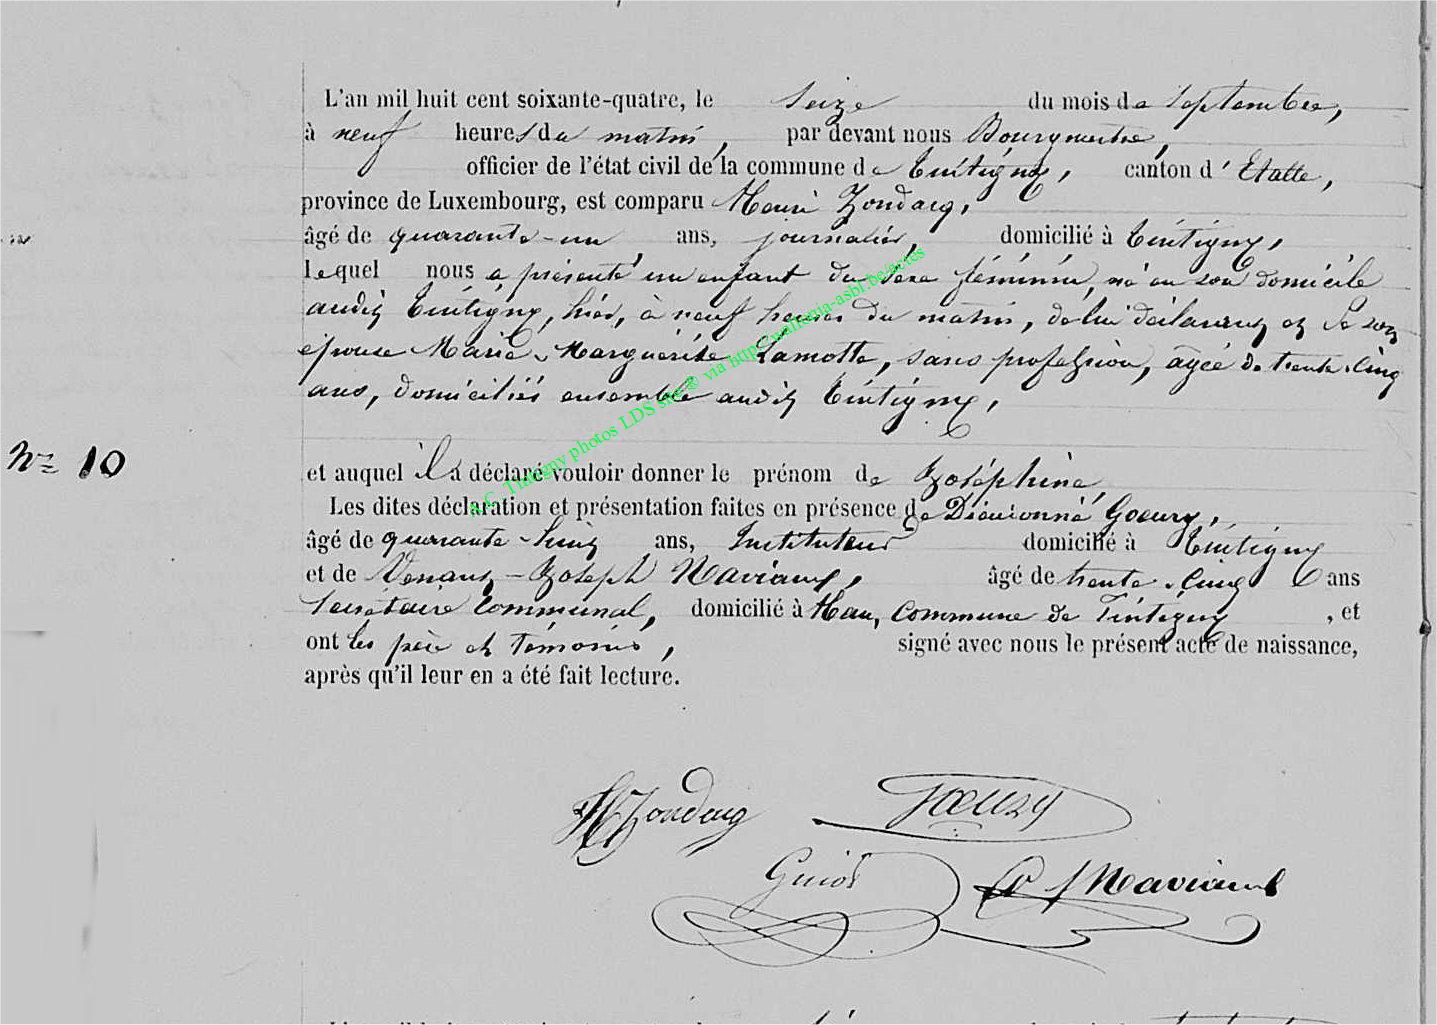 L'an mil huit cent soixante-quatre, le seize du mois de septembre,
à neuf heures du matin, par devant nous Bourgmestre,
officier de l'état civil de la commune de Tintigny, canton d'Etalle,
province de Luxembourg, est comparu Henri Zondacq,
âgé de quarante-un ans, journalier, domicilié à Tintigny,
lequel nous a présenté un enfant du sexe féminin, né en son domicile
audit Tintigny, hier, à neuf heures du matin, de lui déclarant et de son
épouse Marie-Marguérite Lamotte, sans profession, agée de trente-cinq
ans, domiciliés ensemble audit Tintigny,
Nº 10
et auquel il a déclaré vouloir donner le prénom de Joséphine,
Les dites déclaration et présentation faites en présence de Dieudonné Goeury,
âgé de quarante-huit ans, Instituteur domicilié à Tintigny
et de Venant-Joseph Maviaux, âgé de trente-cinq ans
Secrétaire communal, domicilié à Han, commune de Tintigny, et
ont les père et témoins, signé avec nous le présent acte de naissance,
après qu'il leur en a été fait lecture.
H Zondacq Goeury
Guiot Maviaux
A.C. Tintigny photos LDS site® via http://wallonia-asbl.be/actes